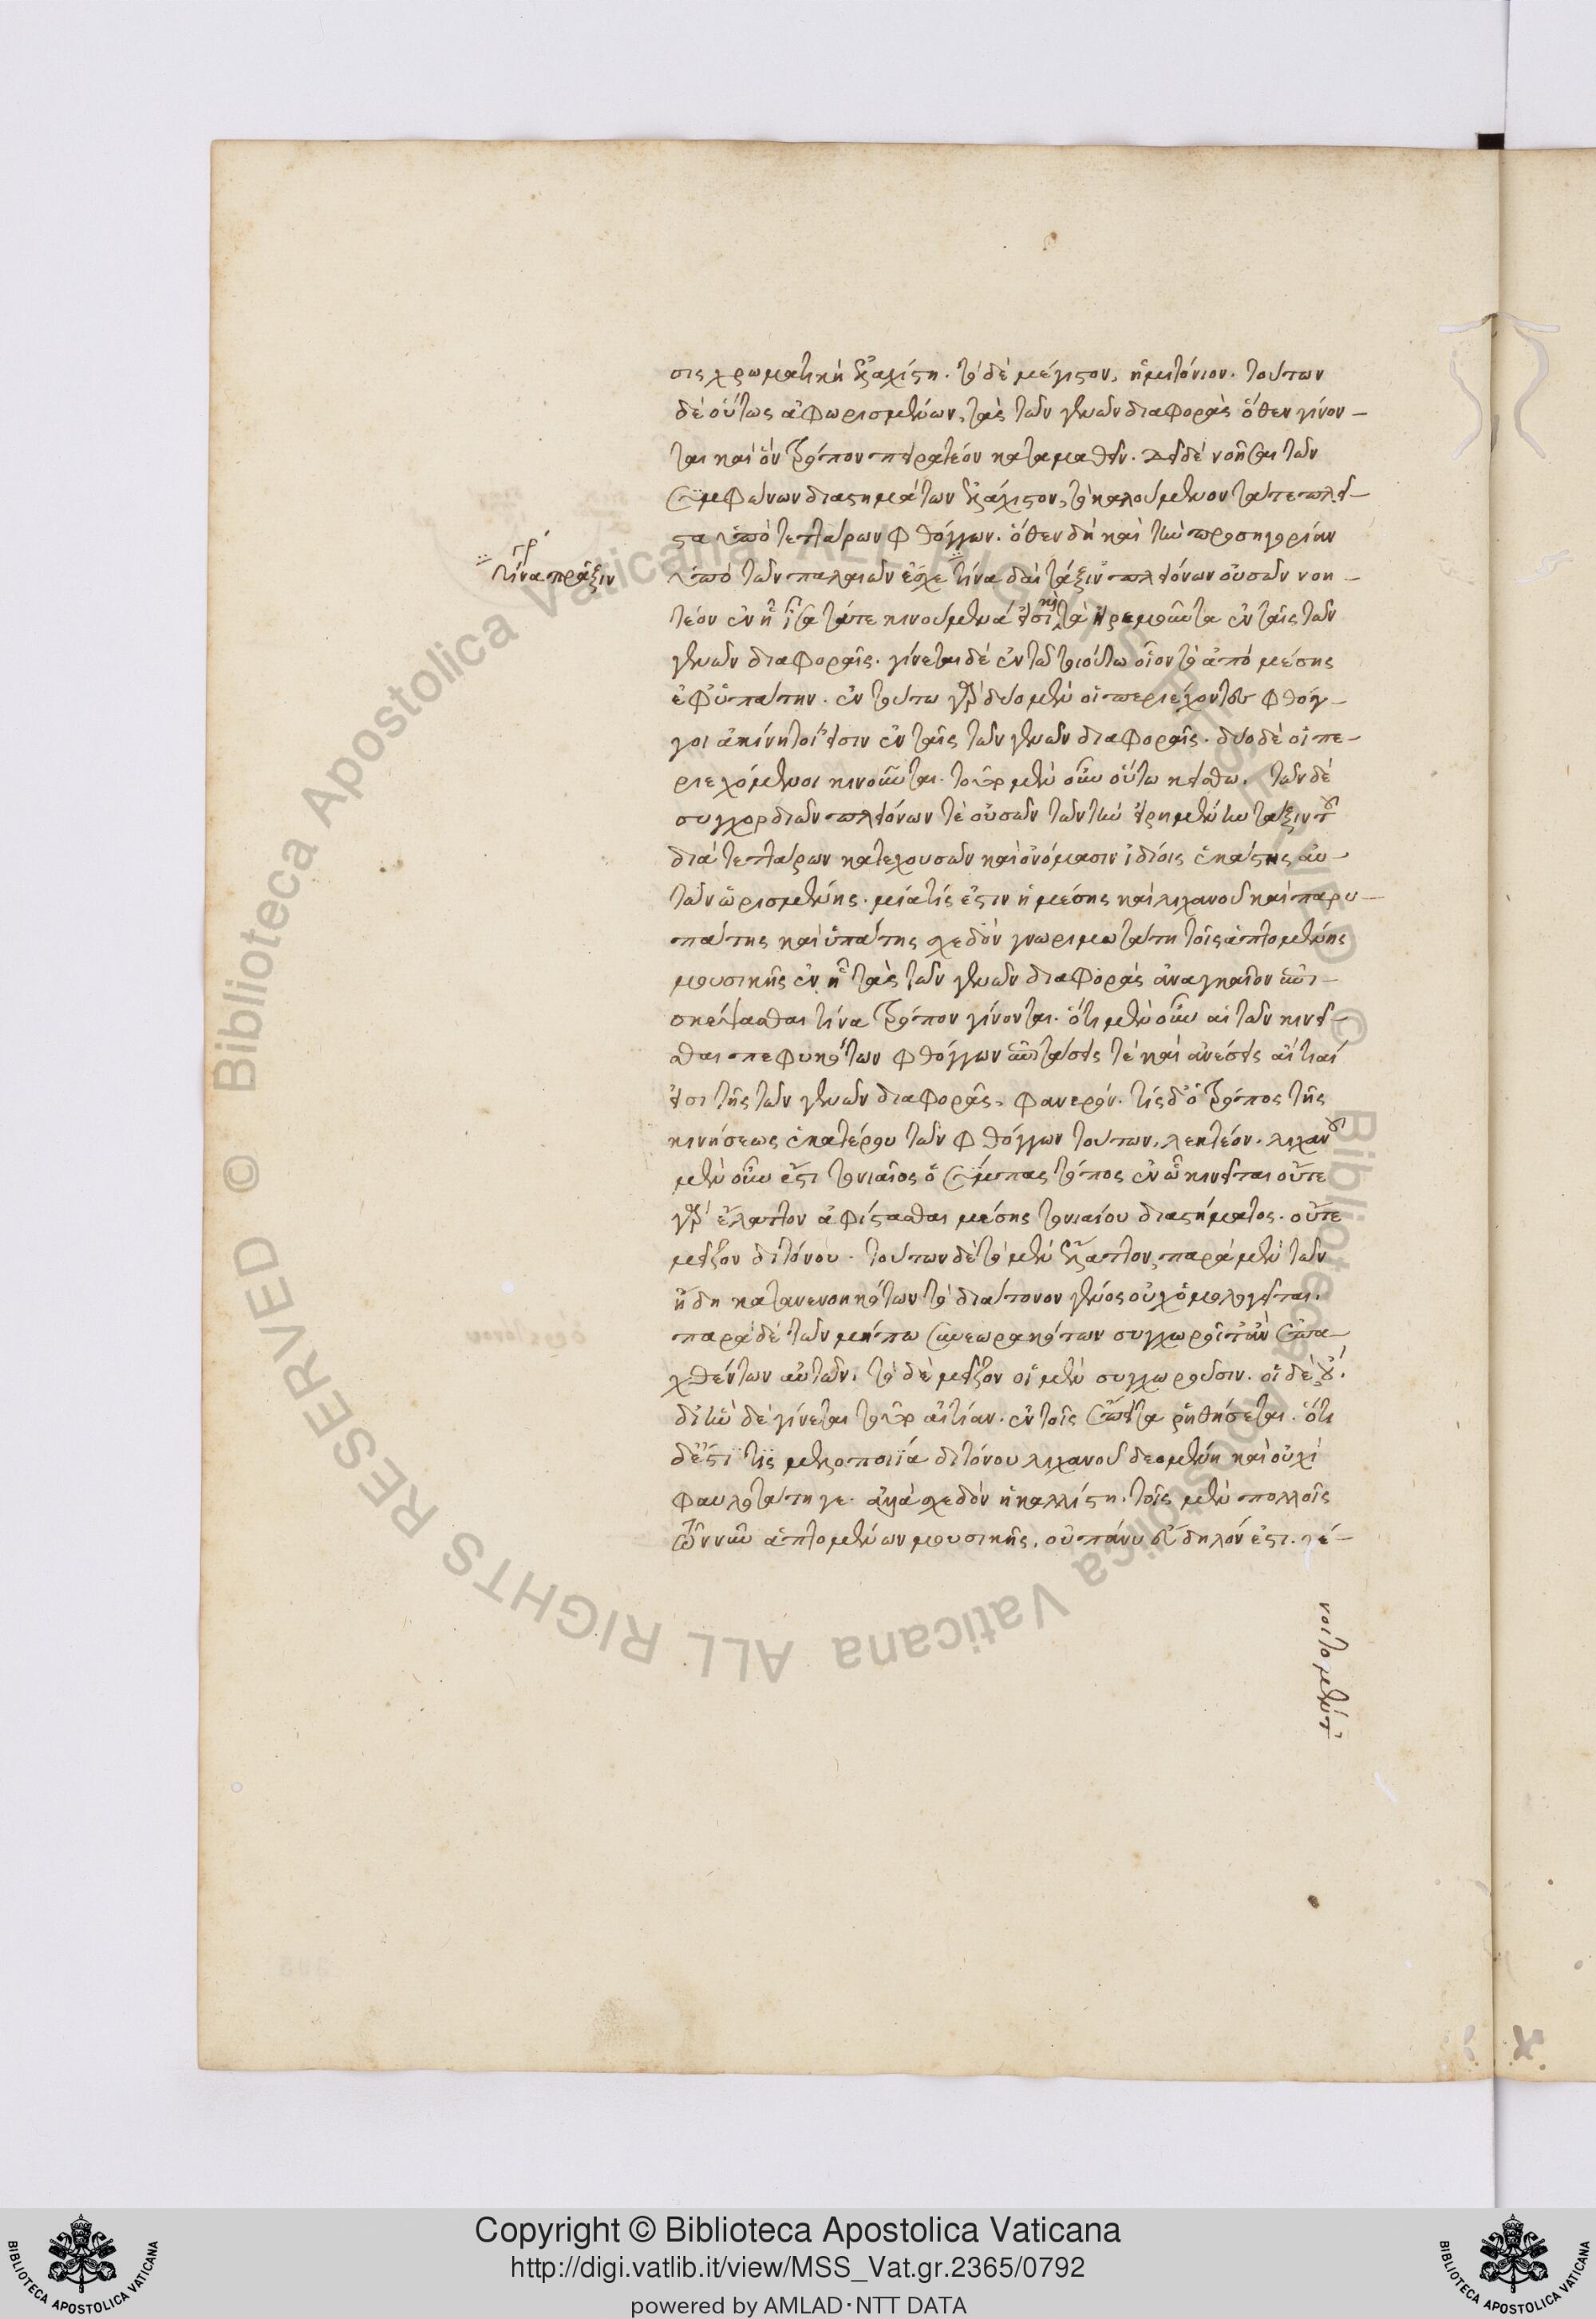 σις χρωματικὴ ἐλαχίστη. τὸ δὲ μέγιστον, ἡμιτόνιον. τούτων
δὲ οὕτως ἀφωρισμένων, τὰς τῶν γενῶν διαφορὰς ὅθεν γίνον-
ται καὶ ὃν τρόπον πειρατέον καταμαθεῖν. δεῖ δὲ νοῆσαι τῶν
συμφώνων διαστημάτων ἐλάχιστον, τὸ καλούμενον τά τε πλεῖ-
στα ὑπὸ τεττάρων φθόγγων. ὅθεν δὴ καὶ τὴν προσηγορίαν
γρ
τίνα πρᾶξιν
ὑπὸ τῶν παλαιῶν ἔσχε τίνα δαὶ τάξιν πλειόνων οὐσῶν νοη-
τέον ἐν ᾗ ἴσα τά τε κινούμενά εἰσι καὶ τὰ ἠρεμοῦντα ἐν ταῖς τῶν
γενῶν διαφοραῖς. γίνεται δὲ ἐν τῷ τοιούτω οἷον τὸ ἀπὸ μέσης
ἐφ' ὑπάτην. ἐν τούτω γὰρ δύο μὲν οἱ περιέχοντες φθόγ-
γοι ἀκίνητοί εἰσιν ἐν ταῖς τῶν γενῶν διαφοραῖς. δύο δὲ οἱ πε-
ριεχόμενοι κινοῦνται. τοῦτο μὲν οὖν οὕτω κείσθω. τῶν δὲ
συγχορδιῶν πλειόνων τὲ οὐσῶν τῶν τὴν εἰρημένην τάξιν τοῦ
διὰ τεττάρων κατεχουσῶν καὶ ὀνόμασιν ἰδίοις ἑκάστης αὐ-
τῶν ὡρισμένης. μία τίς ἐστιν ἡ μέσης καὶ λιχανοῦ καὶ παρυ-
πάτης καὶ ὑπάτης σχεδὸν γνωριμωτάτη τοῖς ἁπτομένης
μουσικῆς ἐν ᾗ τὰς τῶν γενῶν διαφορὰς ἀναγκαῖον ἐπι-
σκέψασθαι τίνα τρόπον γίνονται. ὅτι μὲν οὖν αἱ τῶν κινεῖ-
σθαι πεφυκότων φθόγγων ἐπιτάσεις τὲ καὶ ἀνέσεις αἴτιαί
εἰσι τῆς τῶν γενῶν διαφορᾶς, φανερόν. τίς δ' ὁ τρόπος τῆς
κινήσεως ἑκατέρου τῶν φθόγγων τούτων, λεκτέον. λιχανοῦ
μὲν οὖν ἐστι τονιαῖος ὁ σύμπας τόπος ἐν ᾧ κινεῖται οὔτε
γὰρ ἔλαττον ἀφίστασθαι μέσης τονιαίου διαστήματος. οὔτε
μεῖζον διτόνου. τούτων δὲ τὸ μὲν ἔλαττον, παρὰ μὲν τῶν
ἤδη κατανενοηκότων τὸ διάτονον γένος οὐχ ὁμολογεῖται.
παρὰ δὲ τῶν μήπω συνεωρακότων συγχωροῖτ' ἂν ἐπα-
χθέντων αὐτῶν. τὸ δὲ μεῖζον οἱ μὲν συγχωροῦσιν. οἱ δὲ οὔ.
δι' ἣν δὲ γίνεται τοῦτο αἰτίαν. ἐν τοῖς ἔπειτα ῥηθήσεται. ὅτι
δ' ἔστι τὶς μελοποιΐα διτόνου λιχανοῦ δεομένη καὶ οὐχὶ
φαυλοτάτη γε. ἀλλὰ σχεδὸν ἡ καλλίστη. τοῖς μὲν πολλοῖς
τῶν νῦν ἁπτομένων μουσικῆς, οὐ πάνυ εὔδηλόν ἐστι. γέ-
νοιτο μέντ'
Copyright © Biblioteca Apostolica Vaticana
http://digi.vatlib.it/view/MSS_Vat.gr.2365/0792
powered by AMLAD·NTT DATA